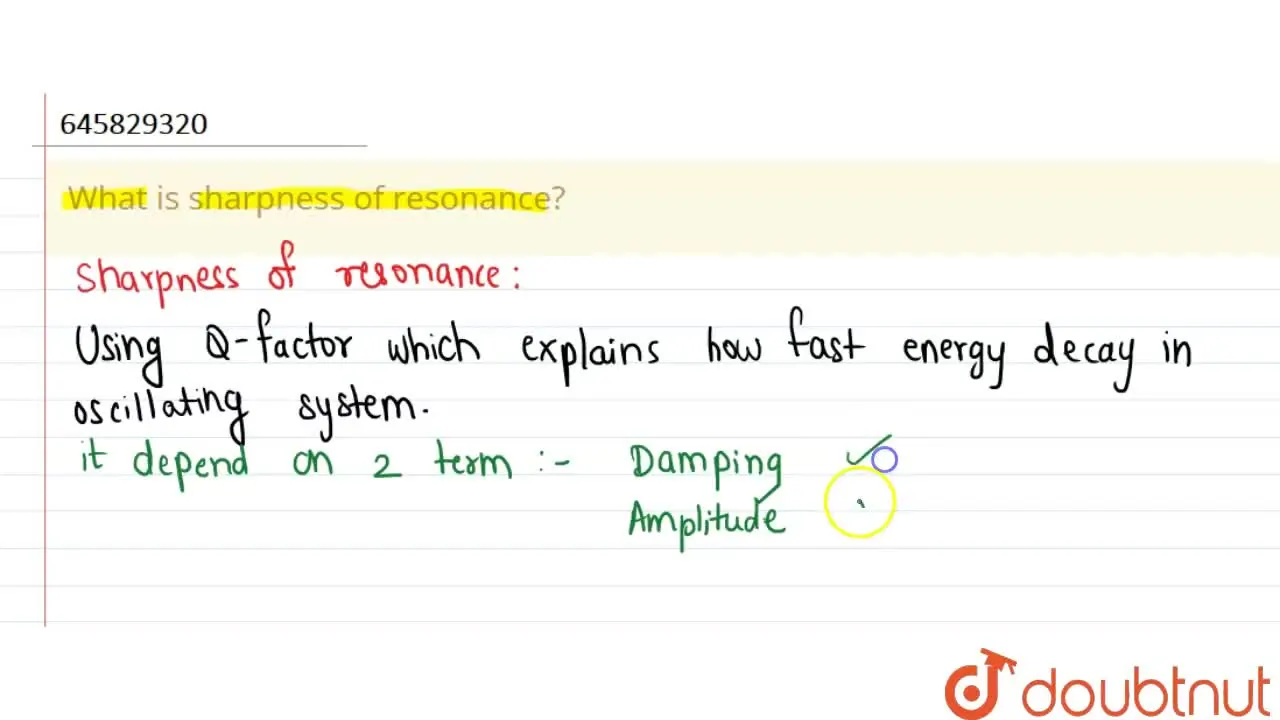 645829320
What is sharpness of resonance?
Sharpness of resonance :
Using Q-factor which explains how fast energy decay in
oscillating system.
it depend on 2 term :- Damping ✓
Amplitude
doubtnut